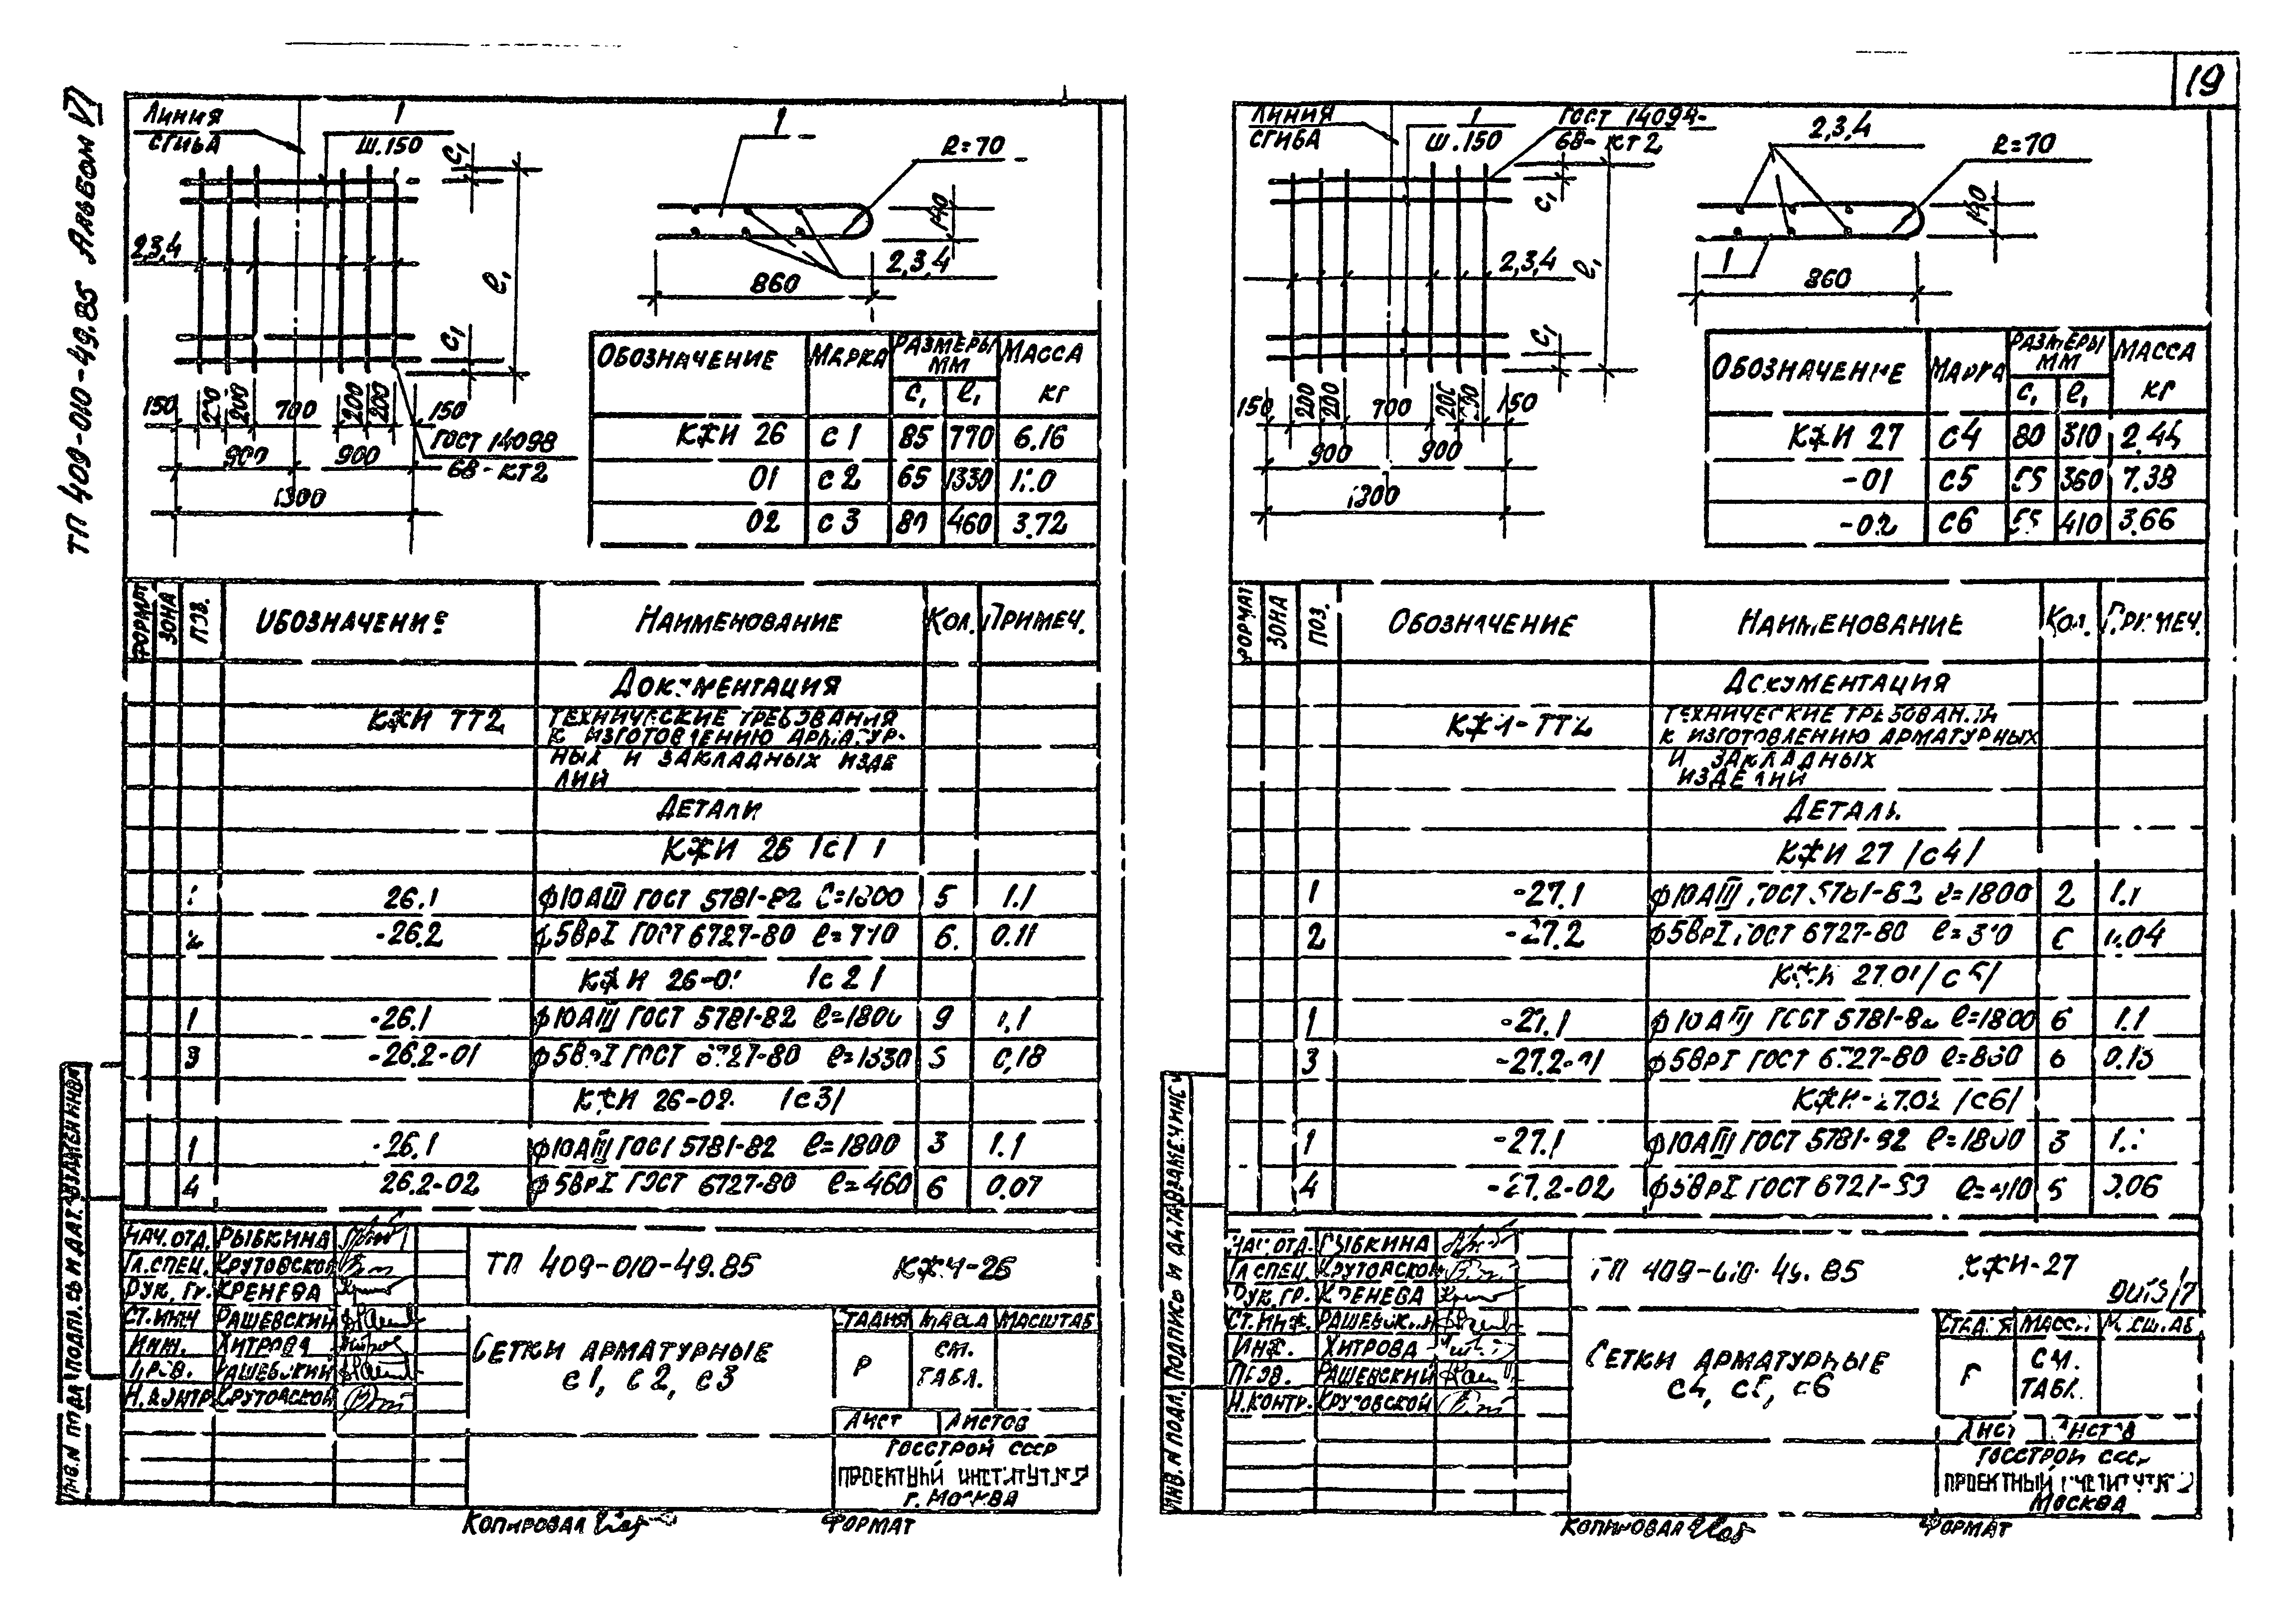 19
ТП 409-010-49.85 Альбом VI
Линия
сгиба
1
ш.150
c1
2,3,4
l1
c1
150 200 200 700 200 200 150
900 900
1800
ГОСТ 14098
68-КТ2
1
R=70
140
2,3,4
860
Обозначение Марка Размеры мм Масса кг
c1 l1
КЖИ 26 С1 85 770 6.16
01 С2 65 1330
02 С3 80 460 3.72
Формат Зона Поз. Обозначение Наименование Кол. Примеч.
Документация
КЖИ ТТ2 Технические требования
к изготовлению арматур-
ных и закладных изде
лий
Детали
КЖИ 26 /с/ 1
26.1 ф10АIII ГОСТ 5781-82 l=1800 5 1.1
2 -26.2 ф5ВрI ГОСТ 6727-80 l=770 6. 0.11
КЖИ 26-01 /с2/
1 -26.1 ф10АIII ГОСТ 5781-82 l=1800 9 1.1
3 -26.2-01 ф5ВрI ГОСТ 6727-80 l=1330 0,18
КЖИ 26-02. /с3/
1 -26.1 ф10АIII ГОСТ 5781-82 l=1800 3 1.1
4 26.2-02 ф5ВрI ГОСТ 6727-80 l=460 6 0.07
Нач.отд. Рыбкина
Гл.спец. Крутовской
Рук.гр. Кренева
Ст.инж Рашевский
Инж. Хитрова
Пров. Рашевский
Н.контр Крутовской
ТП 409-010-49.85 КЖИ-26
Сетки арматурные
с1, с2, с3
Стадия Масса Масштаб
Р см.
табл.
Лист Листов
Госстрой СССР
Проектный институт №2
г. Москва
Копировал Формат
Инв.N подл Подпись и дата Взамен инв
Линия
сгиба
1
ш.150
ГОСТ 14098-
68-КТ2
c1
2,3,4
l1
c1
150 200 200 700 200 200 150
900 900
1800
2,3,4
R=70
140
1
860
Обозначение Марка Размеры мм Масса кг
c1 l1
КЖИ 27 С4 80 310 2.44
-01 С5 55 7.38
-02 С6 55 410 3.66
Формат Зона Поз. Обозначение Наименование Кол. Примеч.
Документация
КЖИ-ТТ2 Технические требования
к изготовлению арматурных
и закладных
изделий
Детали
КЖИ 27 /с4/
1 -27.1 ф10АIII ГОСТ 5781-82 l=1800 2 1.1
2 -27.2 ф5ВрI ГОСТ 6727-80 l=310 0.04
КЖИ 27.01 /с5/
1 -27.1 ф10АIII ГОСТ 5781-82 l=1800 6 1.1
3 -27.2-01 ф5ВрI ГОСТ 6727-80 l=860 6 0.13
КЖИ-27.02 /с6/
1 -27.1 ф10АIII ГОСТ 5781-82 l=1800 3
4 -27.2-02 ф5ВрI ГОСТ 6727-80 l=410 0.06
Нач.отд. Рыбкина
Гл.спец. Крутовской
Рук.гр. Кренева
Ст.инж. Рашевский
Инж. Хитрова
Пров. Рашевский
Н.контр. Крутовской
ТП 409-010-49.85 КЖИ-27
Сетки арматурные
с4, с5, с6
Стадия Масса Масштаб
Р см.
табл.
Лист Листов
Госстрой СССР
Проектный институт №2
Москва
Копировал Формат
Инв.N подл. Подпись и дата Взамен инв